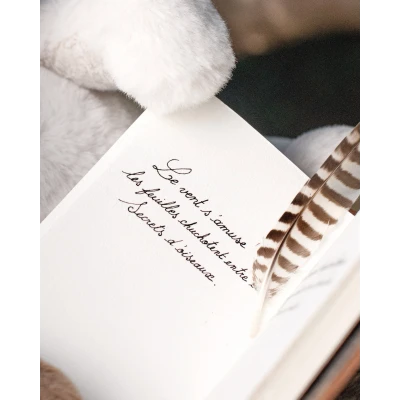 Le vent s'amuse
les feuilles chuchotent entre
Secrets d'oiseaux.